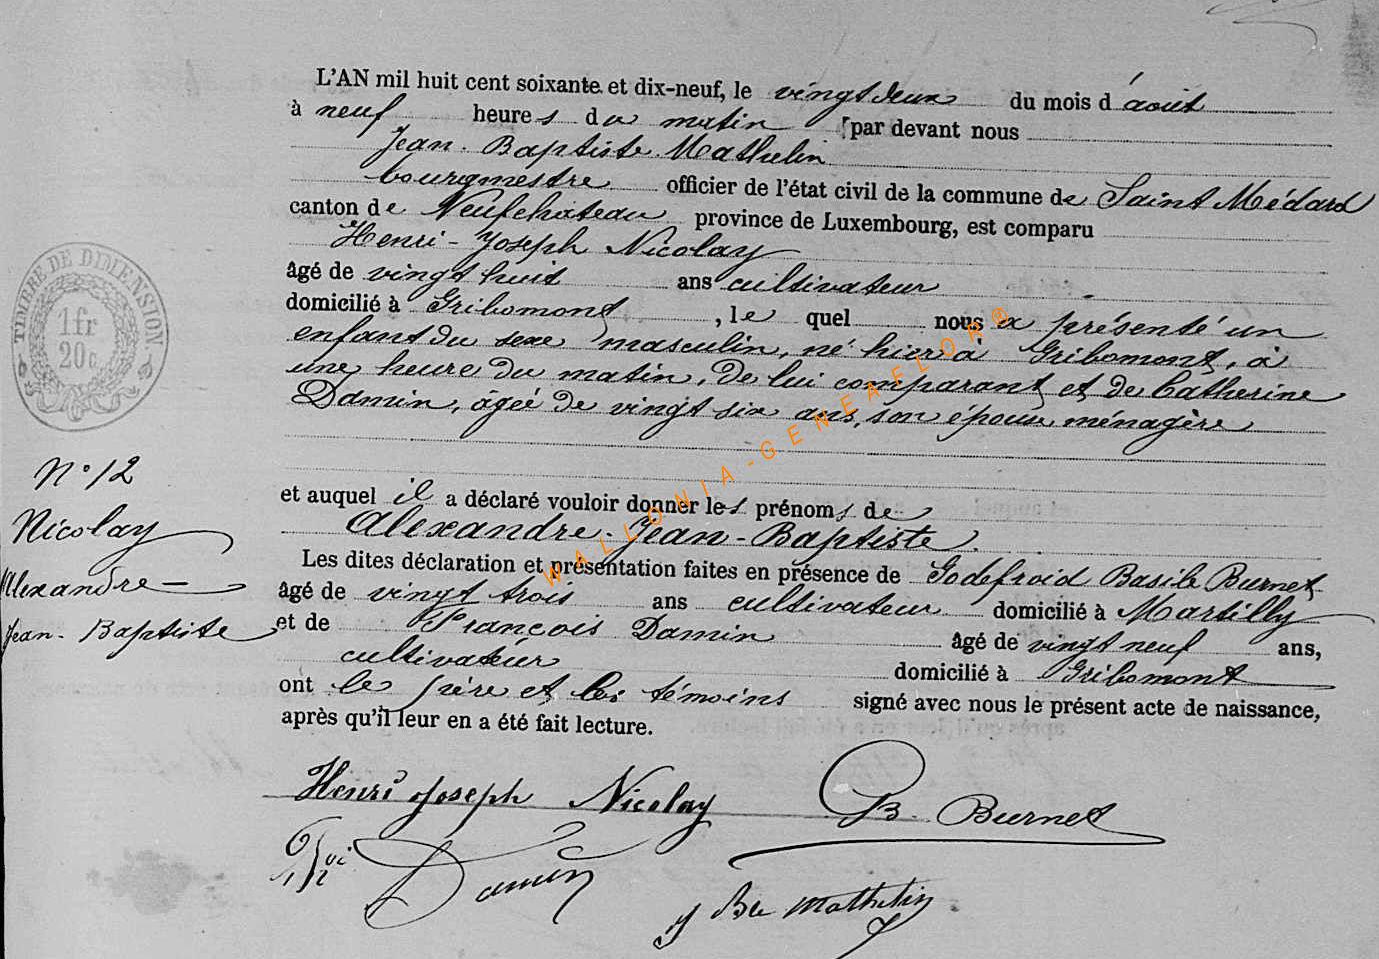 L'AN mil huit cent soixante et dix-neuf, le vingt deux du mois d'août
à neuf heures du matin par devant nous
Jean-Baptiste Mathelin
bourgmestre officier de l'état civil de la commune de Saint Médard
canton de Neufchâteau province de Luxembourg, est comparu
Henri-Joseph Nicolay
âgé de vingt huit ans cultivateur
domicilié à Gribomont, le quel nous a présenté un
enfant du sexe masculin, né hier à Gribomont, à
une heure du matin, de lui comparant et de Catherine
Damin, agée de vingt six ans, son épouse, ménagère
et auquel il a déclaré vouloir donner les prénoms de
Alexandre-Jean-Baptiste.
Les dites déclaration et présentation faites en présence de Godefroid Basile Burnet
âgé de vingt trois ans cultivateur domicilié à Martilly
et de François Damin âgé de vingt neuf ans,
cultivateur domicilié à Gribomont
ont le père et les témoins signé avec nous le présent acte de naissance,
après qu'il leur en a été fait lecture.
Henri Joseph Nicolay GB. Burnet
Damin
J Bte Mathelin
TIMBRE DE DIMENSION
1fr
20c
N° 12
Nicolay
Alexandre-
Jean-Baptiste
WALLONIA-GENEAFLOR®